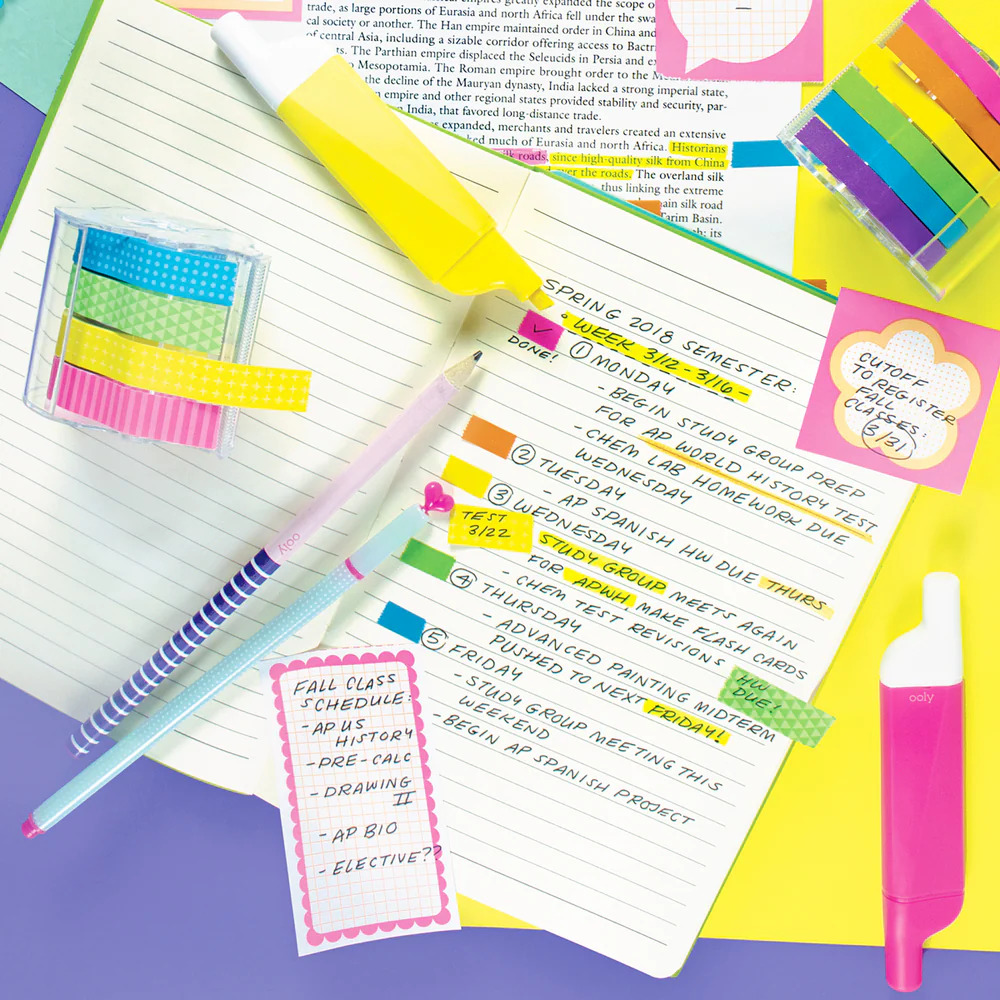 empires greatly expanded the scope o
trade, as large portions of Eurasia and north Africa fell under the swa
cal society or another. The Han empire maintained order in China and
of central Asia, including a sizable corridor offering access to Bactr
ts. The Parthian empire displaced the Seleucids in Persia and ex
Mesopotamia. The Roman empire brought order to the
the decline of the Mauryan dynasty, India lacked a strong imperial state,
n empire and other regional states provided stability and security, par-
India, that favored long-distance trade.
s expanded, merchants and travelers created an extensive
ked much of Eurasia and north Africa. Historians
lk roads, since high-quality silk from China
over the roads. The overland silk
, thus linking the extreme
ain silk road
Tarim Basin.
h: its
SPRING 2018 SEMESTER:
• WEEK 3/12 - 3/16 -
✓
DONE!
① MONDAY
- BEGIN STUDY GROUP PREP
FOR AP WORLD HISTORY TEST
- CHEM LAB HOMEWORK DUE
WEDNESDAY
② TUESDAY
- AP SPANISH HW DUE THURS
③ WEDNESDAY
TEST
3/22
STUDY GROUP MEETS AGAIN
FOR APWH MAKE FLASH CARDS
- CHEM TEST REVISIONS
④ THURSDAY
- ADVANCED PAINTING MIDTERM
PUSHED TO NEXT FRIDAY!
HW
DUE!
⑤ FRIDAY
- STUDY GROUP MEETING THIS
WEEKEND
- BEGIN AP SPANISH PROJECT
CUTOFF
TO REGISTER
FALL
CLASSES:
3/31
FALL CLASS
SCHEDULE:
- AP US
HISTORY
- PRE-CALC
- DRAWING
II
- AP BIO
- ELECTIVE??
ooly
ooly